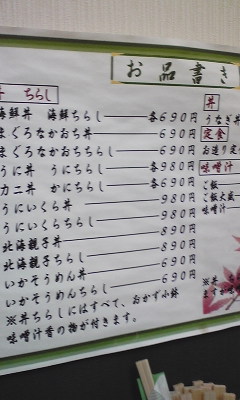 お品書き
丼 ちらし
海鮮丼 海鮮ちらし 各690円
まぐろなかおち丼 690円
まぐろなかおちちらし 690円
うに丼 うにちらし 各980円
カニ丼 かにちらし 各690円
うにいくら丼 980円
うにいくらちらし 980円
北海親子丼 890円
北海親子ちらし 890円
いかそうめん丼 690円
いかそうめんちらし 690円
※丼ちらしにはすべて、おかず小鉢
味噌汁香の物が付きます。
丼
うなぎ丼
定食
お造り定
味噌汁
ご飯
ご飯大盛
味噌汁
※丼